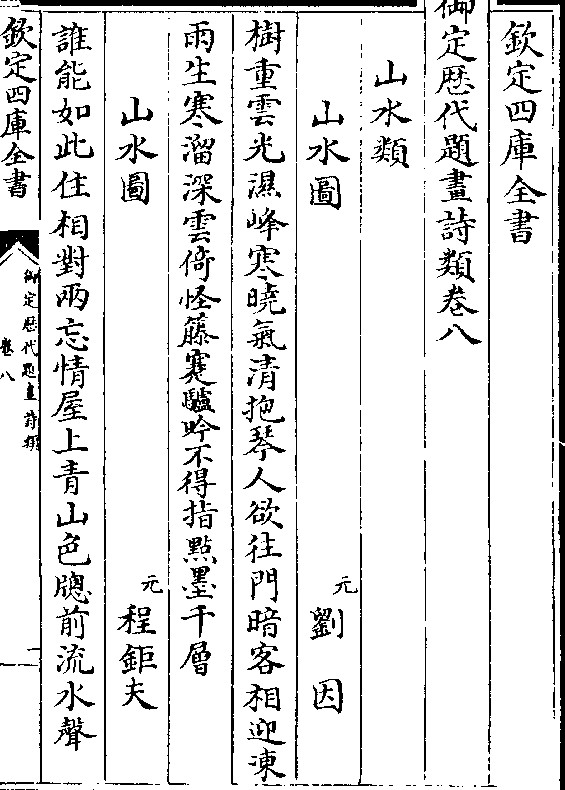 欽定四庫全書
御定歴代題畫詩類卷八
山水類
山水圖　元　劉因
樹重雲光濕峰寒曉氣清抱琴人欲往門暗客相迎凍
雨生寒溜深雲倚怪藤蹇驢吟不得指點墨千層
山水圖　元　程鉅夫
誰能如此住相對兩忘情屋上青山色牕前流水聲
欽定四庫全書
御定歴代題畫詩類
卷八
一